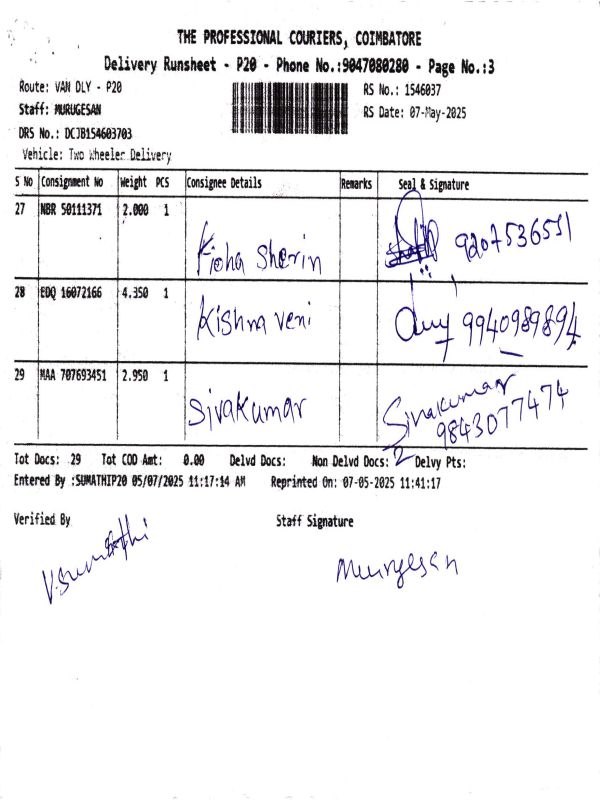 THE PROFESSIONAL COURIERS, COIMBATORE
Delivery Runsheet - P20 - Phone No.:9047080280 - Page No.:3
Route: VAN DLY - P20
RS No.: 1546037
Staff: MURUGESAN
RS Date: 07-May-2025
DRS No.: DCJB154603703
Vehicle: Two Wheeler Delivery
S No Consignment No Weight PCS Consignee Details Remarks Seal & Signature
27 NBR 50111371 2.000 1
Sherin 9207536591
28 EDQ 16072166 4.350 1
Kishna veni 9940989894
29 MAA 707693451 2.950 1
Sivakumar Sivakumar
9843077474
Tot Docs: 29 Tot COD Amt: 0.00 Delvd Docs: Non Delvd Docs: 2 Delvy Pts:
Entered By :SUMATHIP20 05/07/2025 11:17:14 AM Reprinted On: 07-05-2025 11:41:17
Verified By Staff Signature
V.Sumathi Murugesan